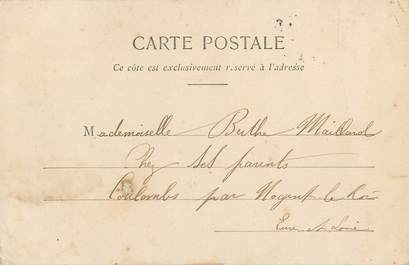 CARTE POSTALE
Ce côte est exclusivement réservé à l'adresse
Mademoiselle Berthe Maillard
Chez ses parents
Coulombs par Nogent le Roi
Eure et Loire